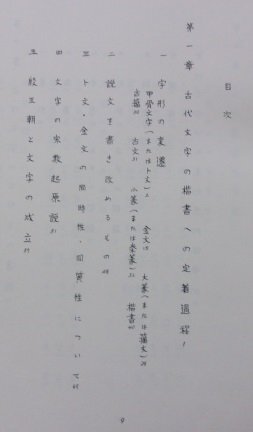 目次
第一章 古代文字の楷書への定着過程 1
一 字形の変遷
甲骨文字(または卜文)2 金文15 大篆(または籀文)28
古籀 古文31 小篆(または秦篆)32 楷書
二 説文を書き改めるもの
三 卜文・金文の同時性・同質性について
四 文字の宗教起原説
五 殷王朝と文字の成立
9